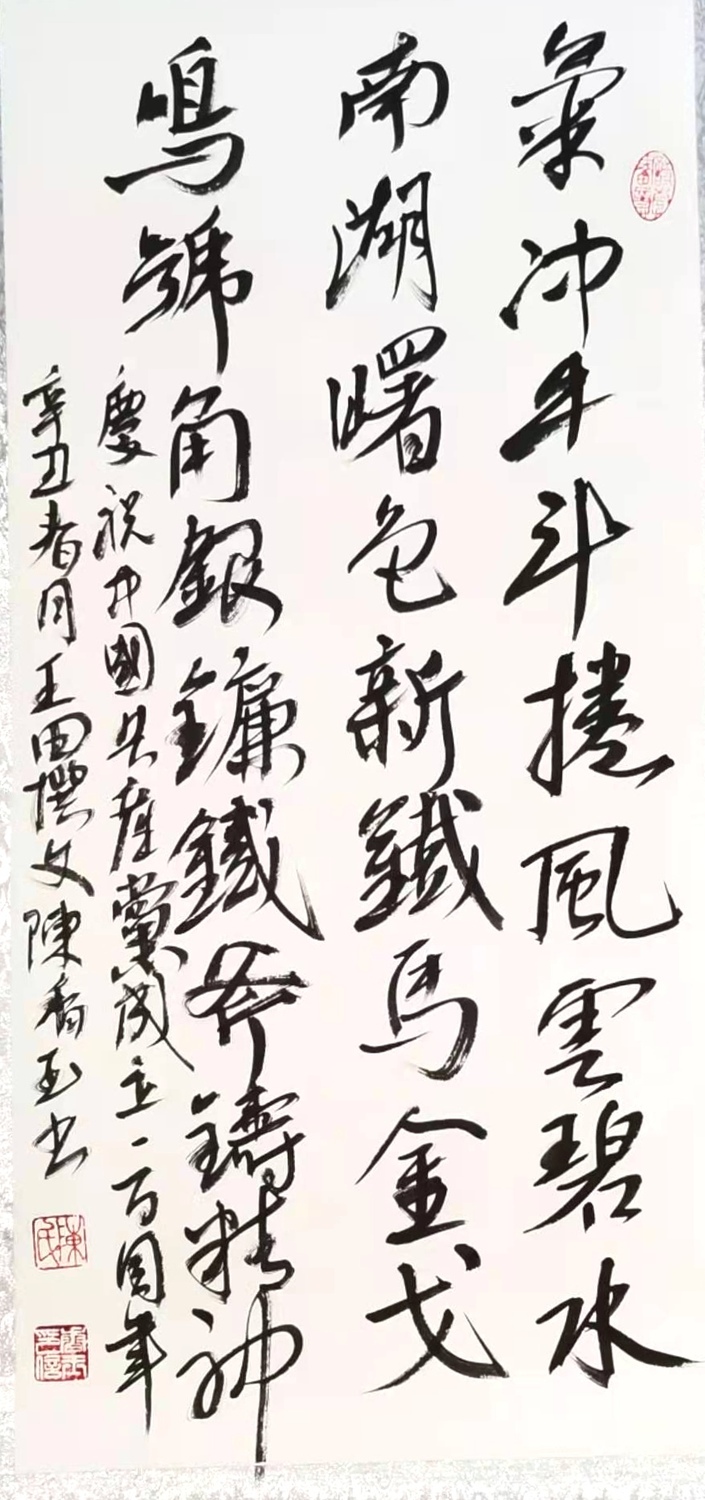 氣冲牛斗捲風雲碧水
南湖曙色新鐵馬金戈
鳴號角銀鐮鐵斧鑄精神
慶祝中國共產黨成立一百周年
辛丑春月王田撰文陳香玉书
陳氏